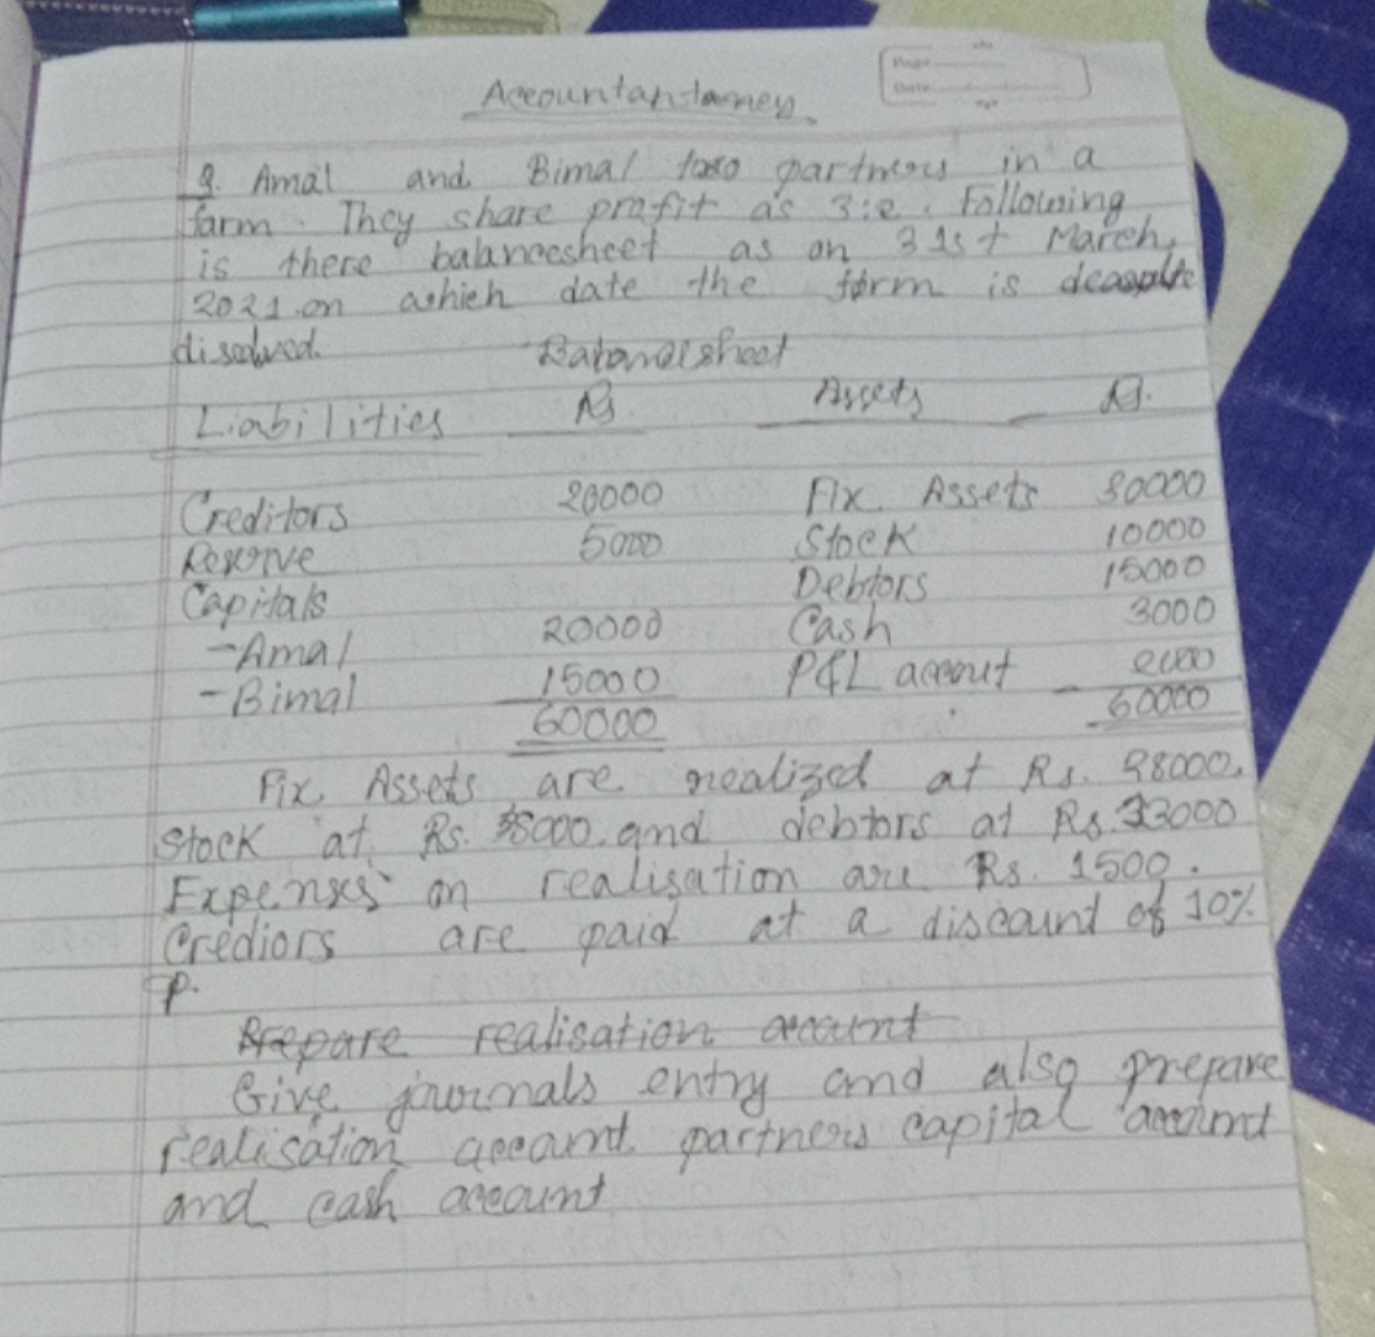 Page
Date
Accountantancy
Q. Amal and Bimal two partners in a
farm. They share profit as 3:2. Following
is there balancesheet as on 31st March,
2021 on which date the form is
disolved. Balancesheet
Liabilities Rs. Assets Rs.
Creditors 20000 Fix. Assets 30000
Reserve 5000 Stock 10000
Capitals Debtors 15000
-Amal 20000 Cash 3000
-Bimal 15000 P&L accout 2000
60000 60000
Fix. Assets are realized at Rs. 28000,
Stock at Rs. 8000 and debtors at Rs. 13000
Expenses on realisation are Rs. 1500.
Crediors are paid at a discount of 10%
P.
Prepare realisation account
Give journals entry and also prepare
realisation account partners capital account
and cash account